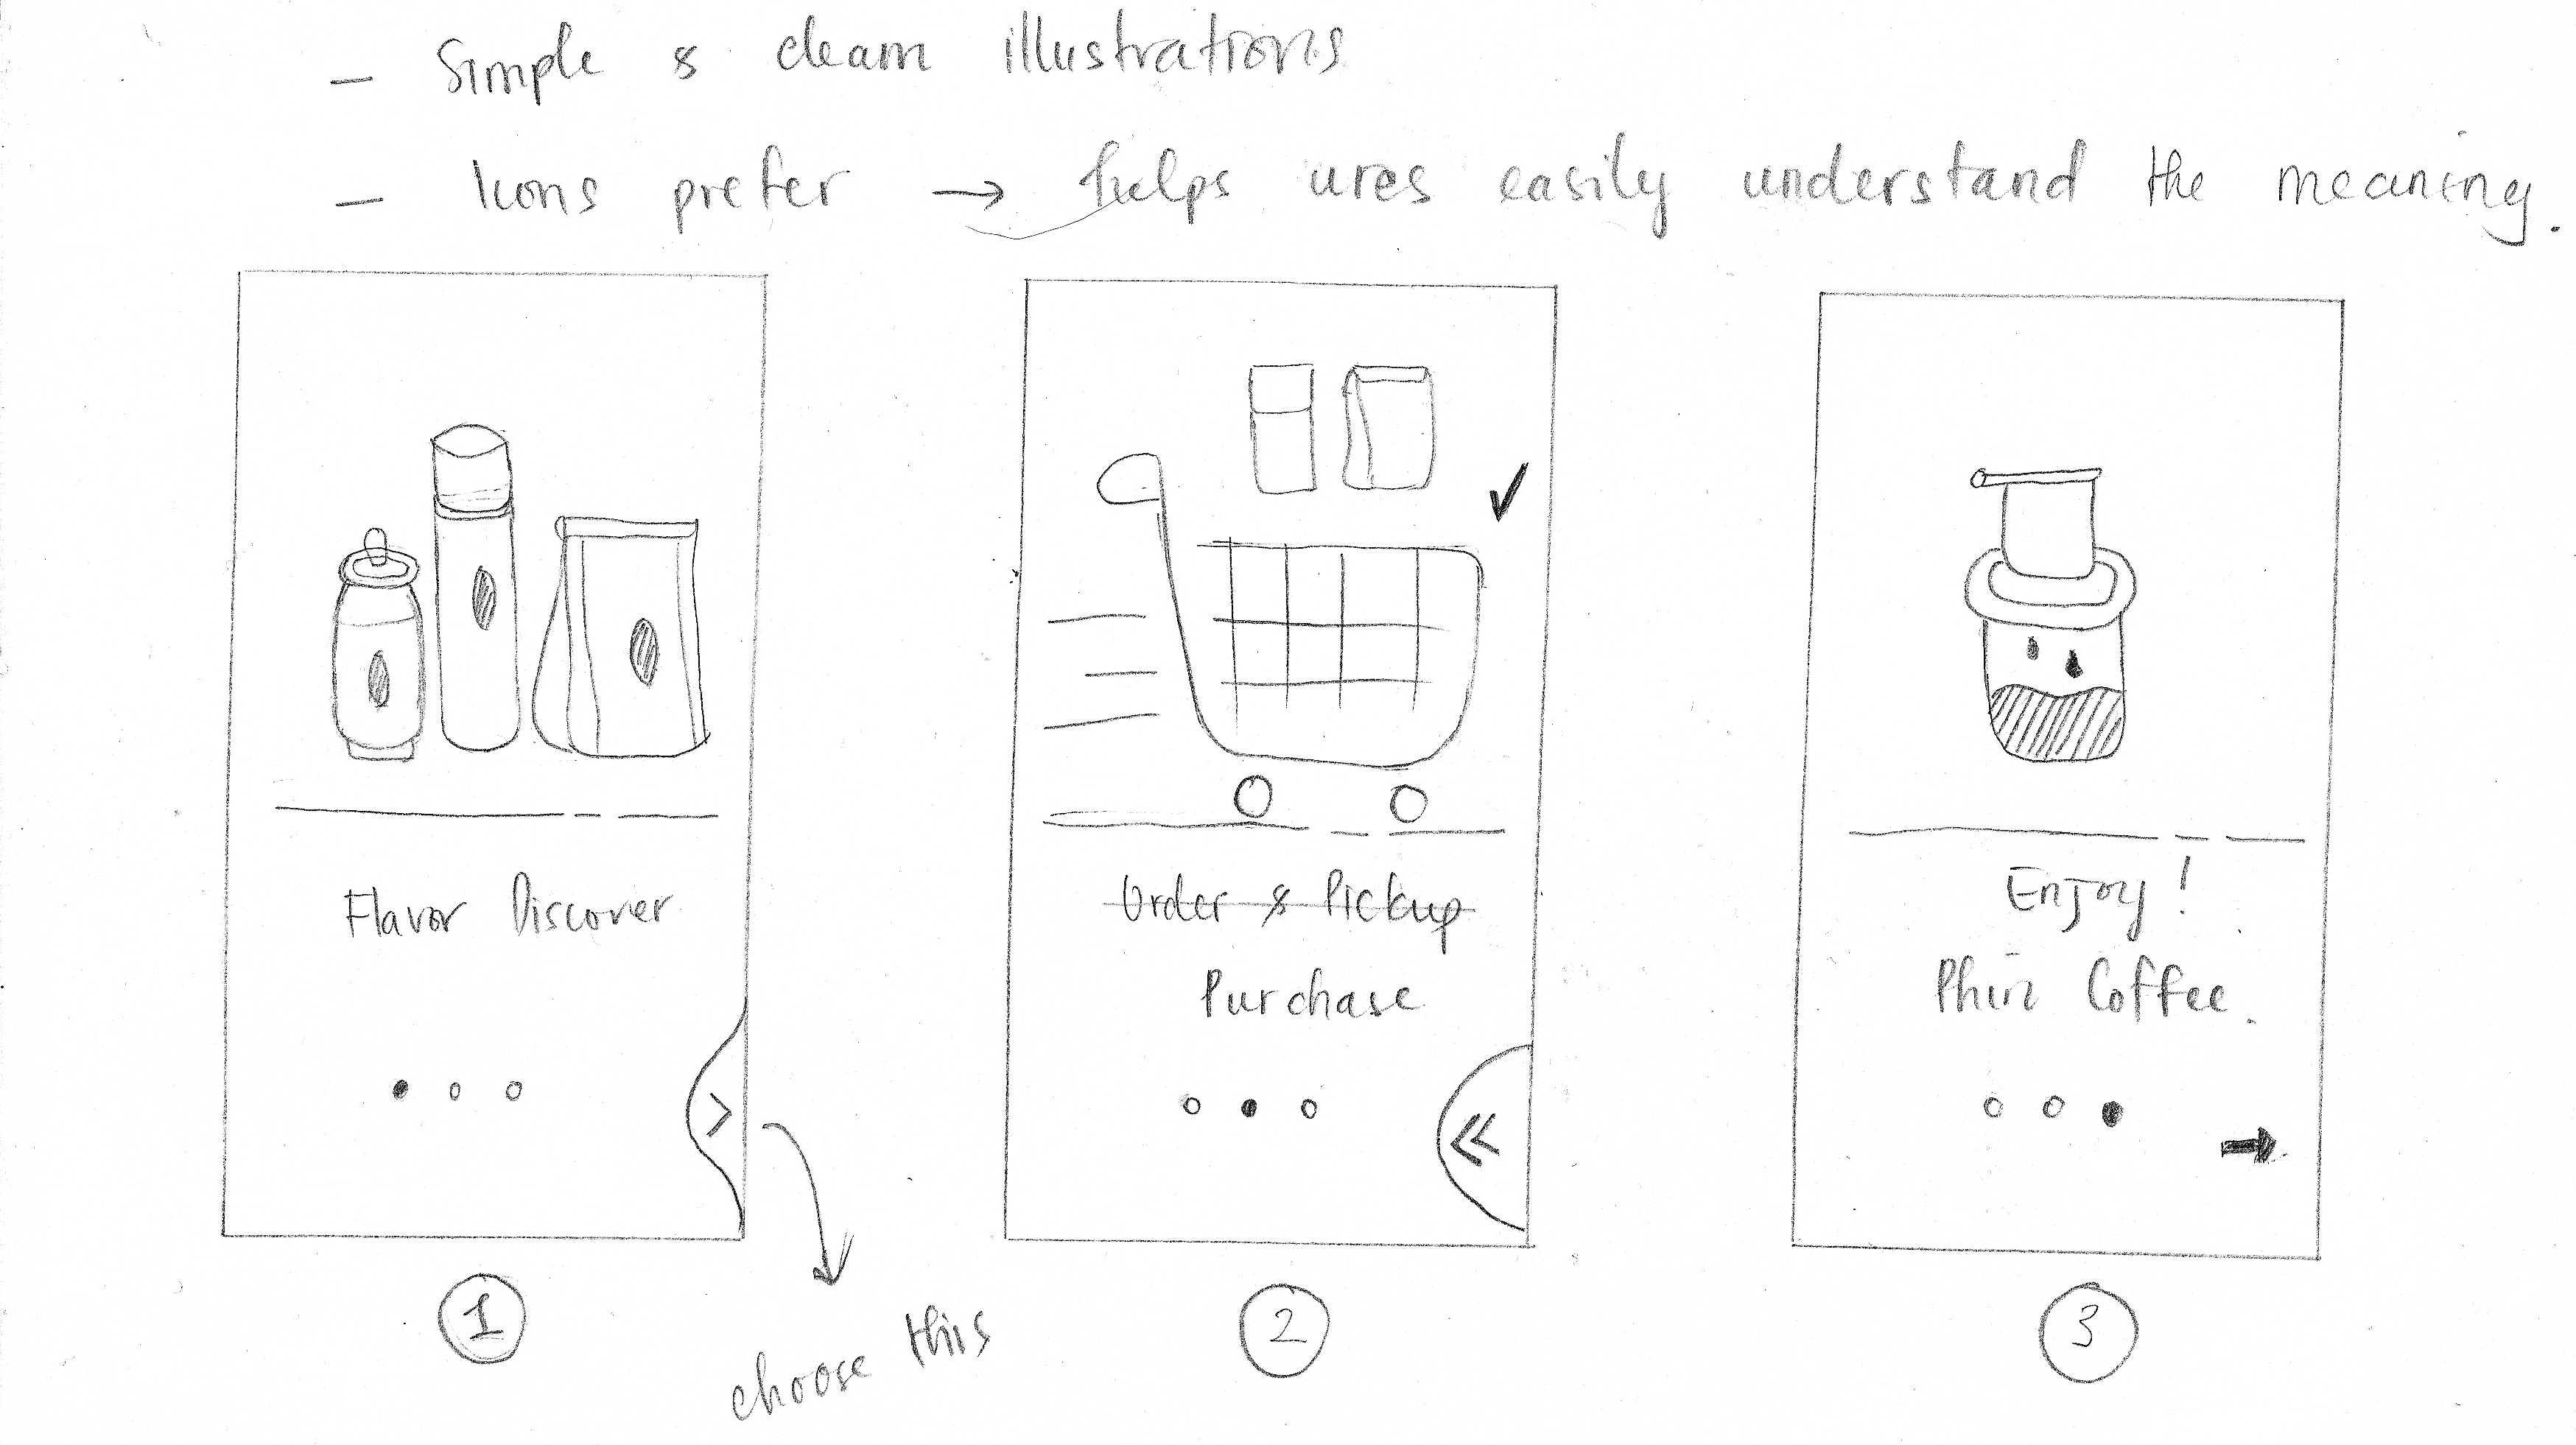 - Simple & clean illustrations
- Icons prefer → helps ures easily understand the meaning.
Flavor Discover
>
1
choose this
Order & Pickup
Purchase
<<
2
Enjoy!
Phin Coffee.
3